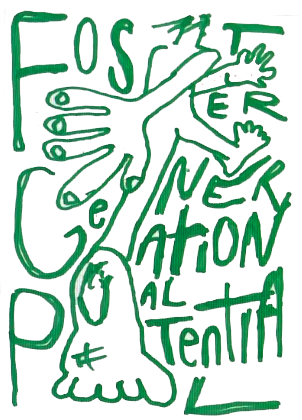 FOST
ER
GeNER
ATiON
AL
POTentiA
L